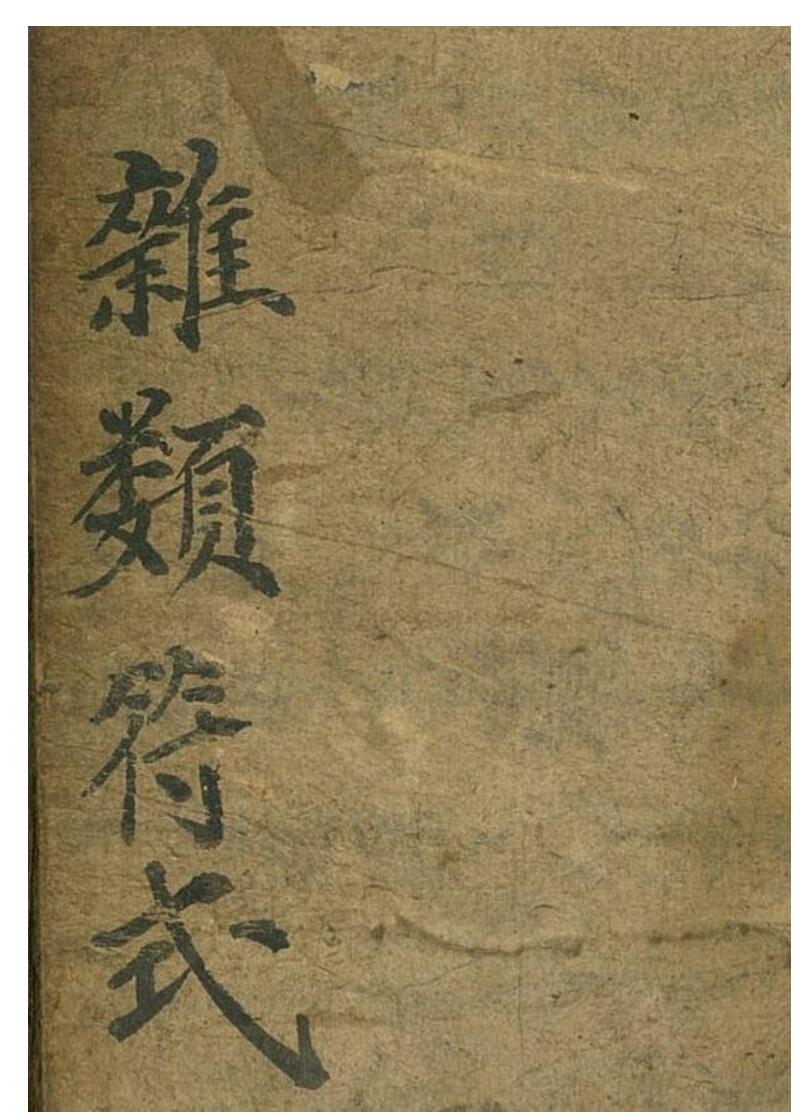 雜類符式